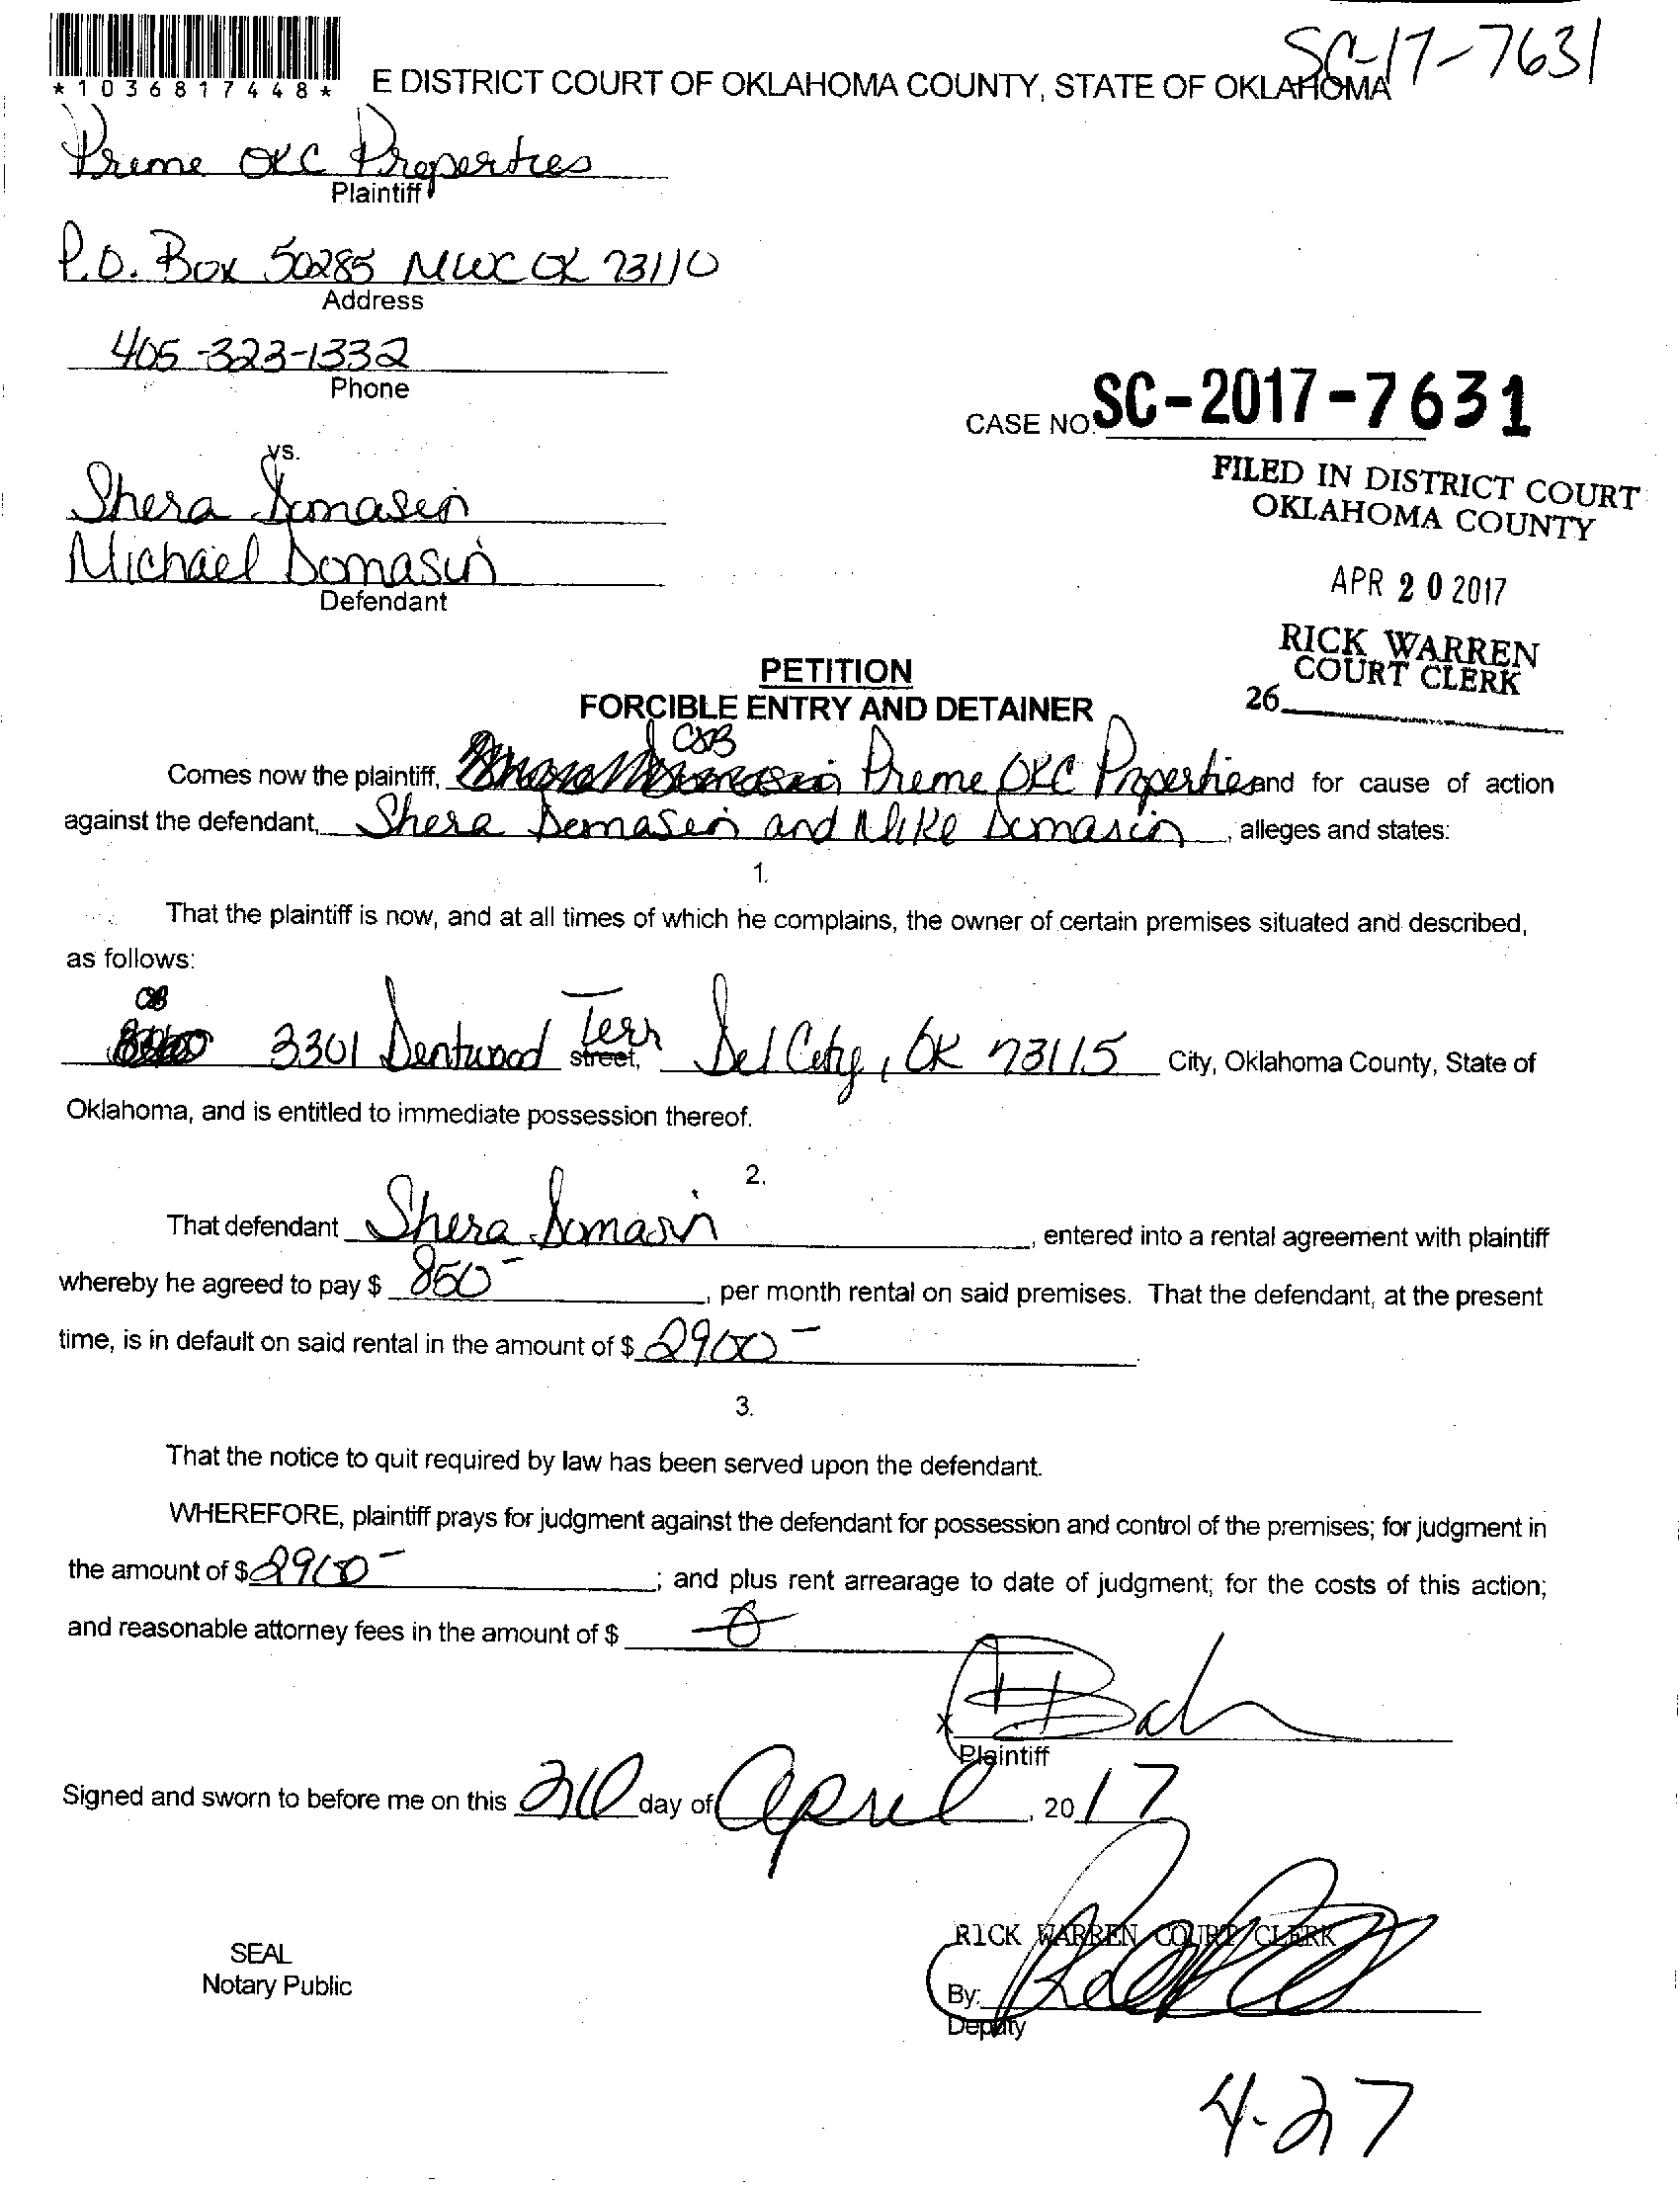 SC-17-7631
*1036817448*
E DISTRICT COURT OF OKLAHOMA COUNTY, STATE OF OKLAHOMA
Preme OKC Properties
Plaintiff
P.O. Box 50285 MWC OK 73110
Address
405-323-1332
Phone
CASE NO. SC-2017-7631
vs.
FILED IN DISTRICT COURT
OKLAHOMA COUNTY
Shera Domasin
Michael Domasin
Defendant
APR 20 2017
RICK WARREN
COURT CLERK
26
PETITION
FORCIBLE ENTRY AND DETAINER
Comes now the plaintiff, Preme OKC Properties and for cause of action
against the defendant, Shera Domasin and Mike Domasin, alleges and states:
1.
That the plaintiff is now, and at all times of which he complains, the owner of certain premises situated and described,
as follows:
3301 Dentwood Terr street, Del City, OK 73115 City, Oklahoma County, State of
Oklahoma, and is entitled to immediate possession thereof.
2.
That defendant Shera Domasin, entered into a rental agreement with plaintiff
whereby he agreed to pay $ 850-, per month rental on said premises. That the defendant, at the present
time, is in default on said rental in the amount of $ 2900-
3.
That the notice to quit required by law has been served upon the defendant.
WHEREFORE, plaintiff prays for judgment against the defendant for possession and control of the premises; for judgment in
the amount of $ 2900-; and plus rent arrearage to date of judgment; for the costs of this action;
and reasonable attorney fees in the amount of $ 0
Plaintiff
Signed and sworn to before me on this day of April, 2017
RICK WARREN COURT CLERK
SEAL
Notary Public
By:
Deputy
4-27